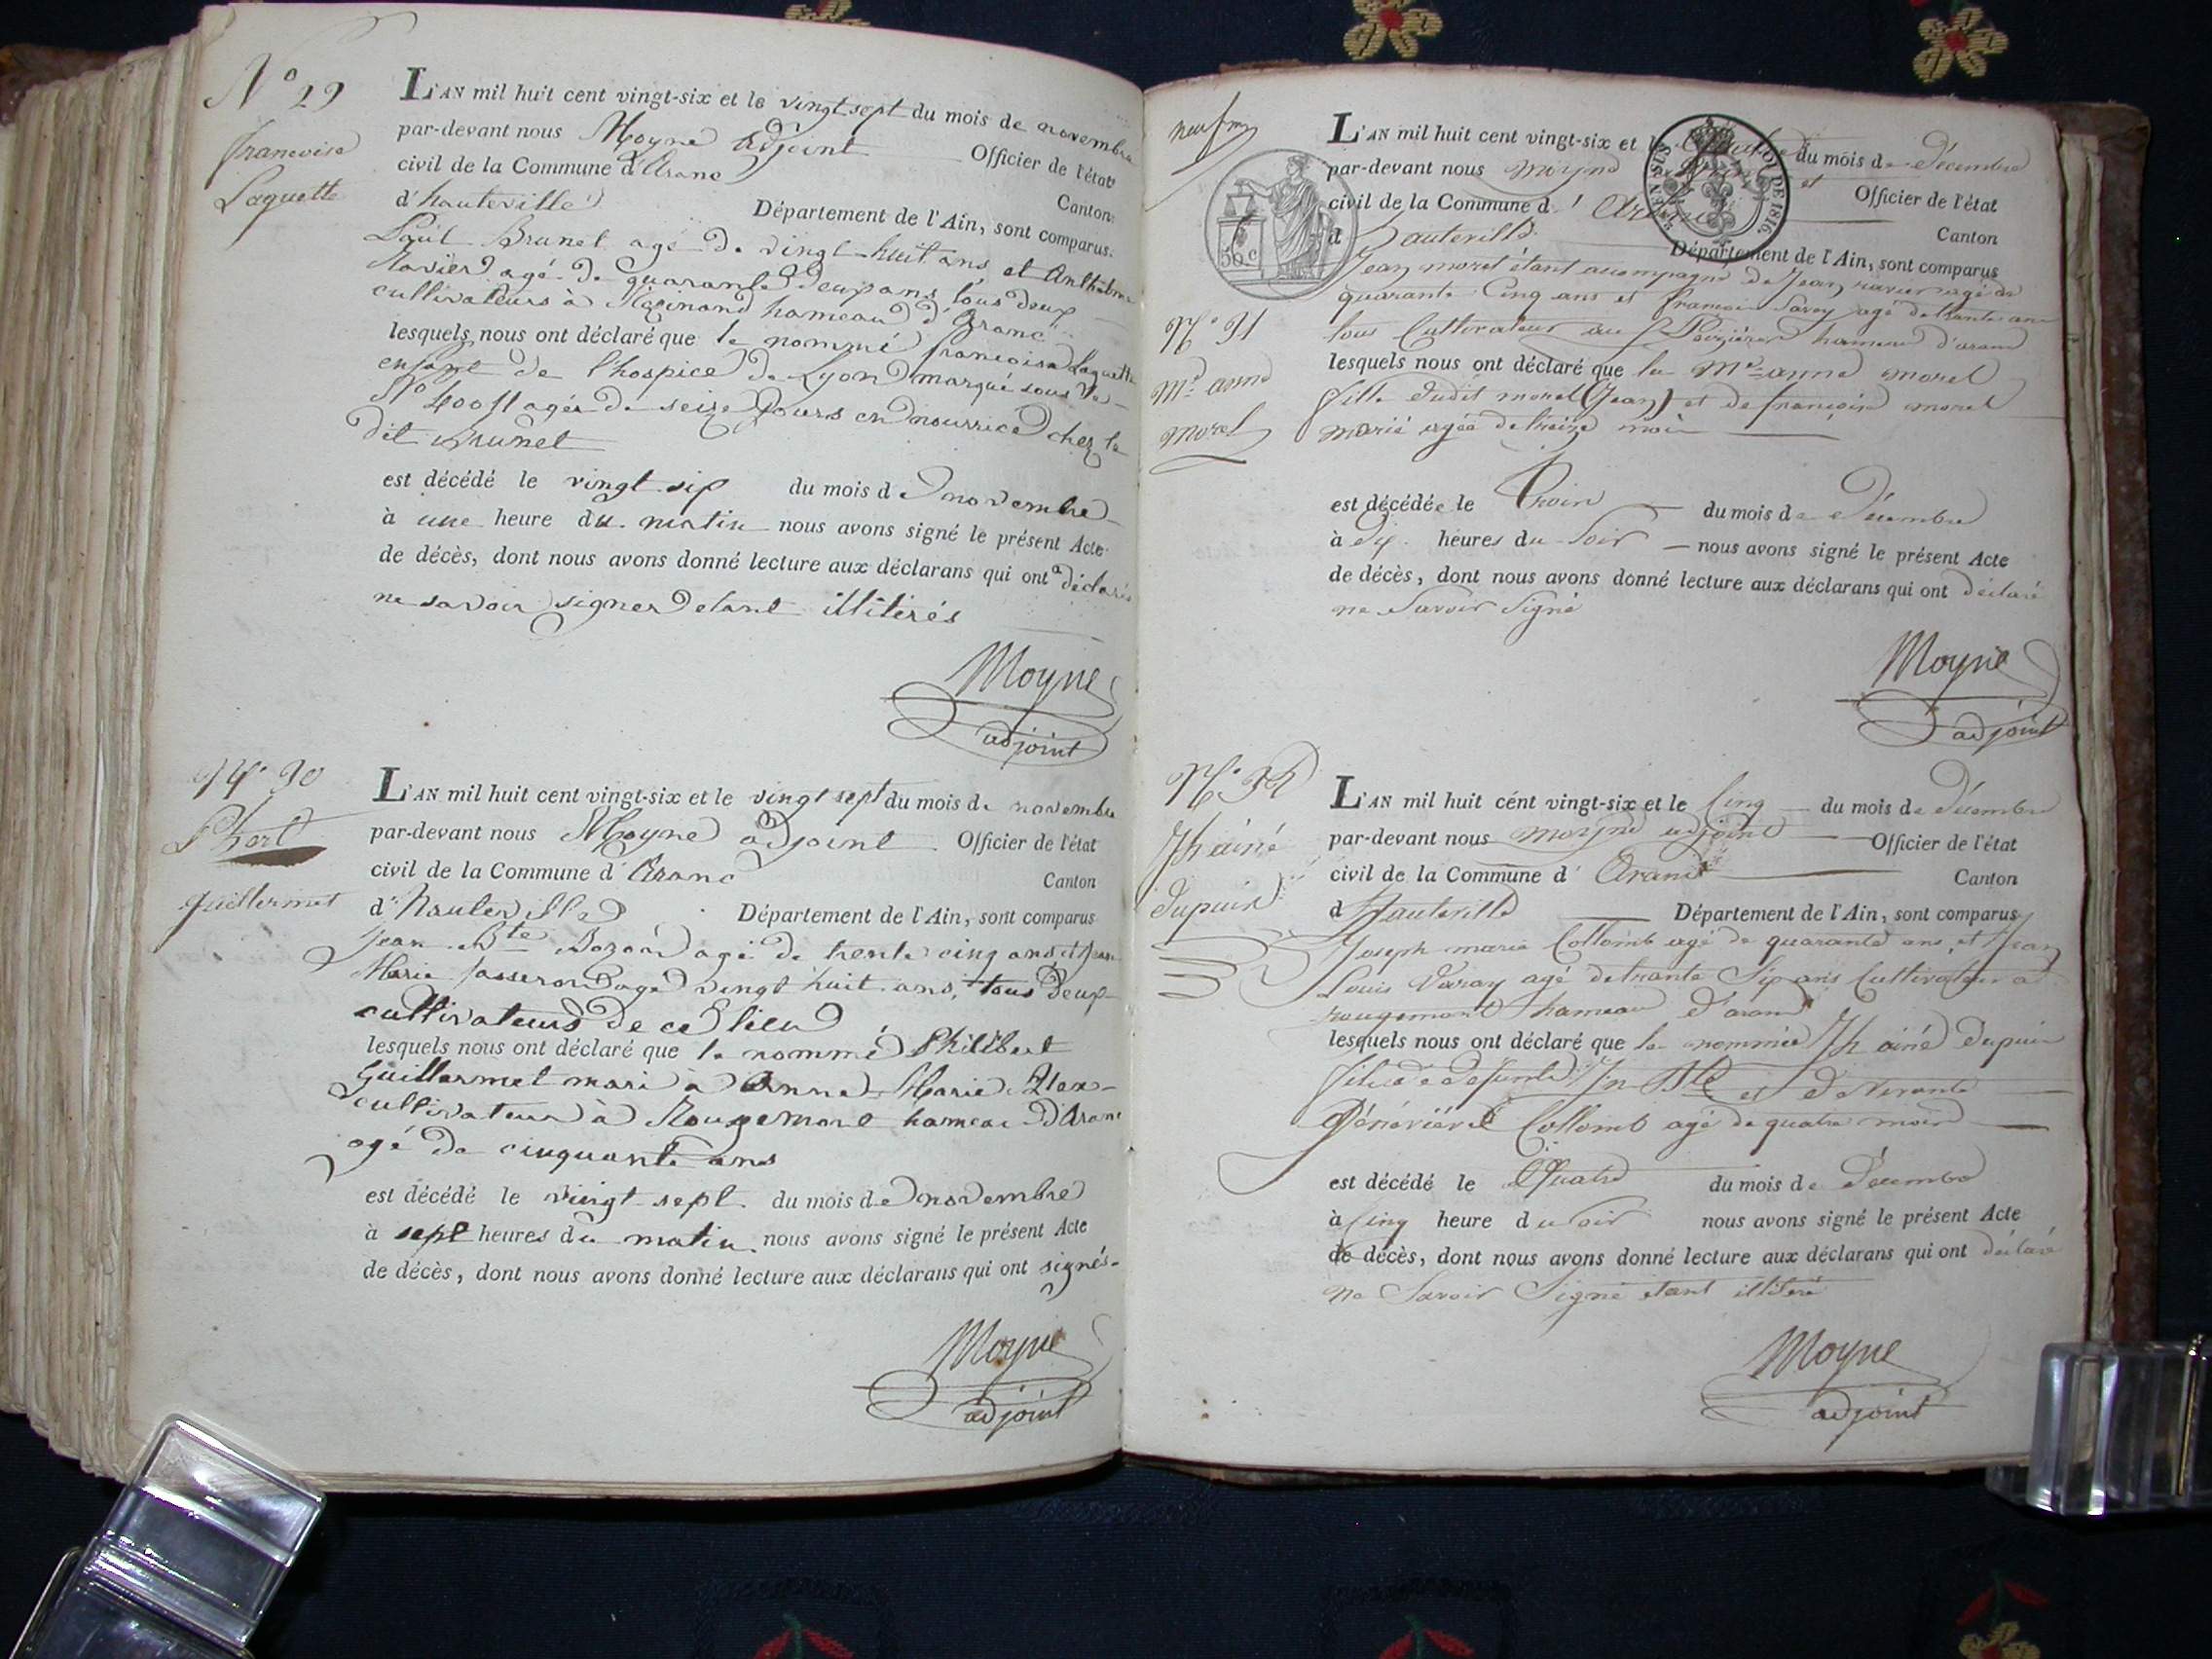 N° 29
francoise
Laguette
L'AN mil huit cent vingt-six et le vingt sept du mois de novembre
par-devant nous Moyne adjoint Officier de l'état
civil de la Commune d'Aranc Canton
d'hauteville Département de l'Ain, sont comparus
Brunet agé de vingt-huit ans et Anthelme
Ravier agé de quarante deux ans tous deux
cultivateurs à hameau d'Aranc
lesquels nous ont déclaré que le nommé francoise Laguette
enfant de l'hospice de Lyon marqué sous le
N° agée de seize jours en nourrice chez le
dit Brunet
est décédé le vingt six du mois de novembre
à une heure du matin nous avons signé le présent Acte
de décès, dont nous avons donné lecture aux déclarans qui ont déclarés
ne savoir signer etant illitirés
Moyne
adjoint
N° 30
Phert
guillermet
L'AN mil huit cent vingt-six et le vingt sept du mois de novembre
par-devant nous Moyne adjoint Officier de l'état
civil de la Commune d'Aranc Canton
d'Hauteville Département de l'Ain, sont comparus
Jean Bte Bozon agé de trente cinq ans et Jean
Marie Jasseron agé vingt huit ans, tous deux
cultivateurs de ce lieu
lesquels nous ont déclaré que le nommé Philibert
Guillermet mari à Anne Marie
cultivateur à Rougemont hameau d'Aranc
agé de cinquante ans
est décédé le vingt sept du mois de novembre
à sept heures du matin nous avons signé le présent Acte
de décès, dont nous avons donné lecture aux déclarans qui ont signés
Moyne
adjoint
TIMBRE
50 c
LOI DE 1816.
L'AN mil huit cent vingt-six et le du mois de décembre
par-devant nous moyne Officier de l'état
civil de la Commune d' Aranc Canton
d hauteville Département de l'Ain, sont comparus
Jean morel étant acompagné de Jean ravier agé de
quarante Cinq ans et francois Savey agé de trante ans
tous Cultivateur au hameau d'aranc
N° 31
Me anne
morel
lesquels nous ont déclaré que la Me anne morel
fille dudit morel (Jean) et de francoise morel
marié agée de treize mois
est décédée le trois du mois de décembre
à dix heures du Soir nous avons signé le présent Acte
de décès, dont nous avons donné lecture aux déclarans qui ont déclaré
ne Savoir Signé
Moyne
adjoint
N° 32
Jh ainé
dupuis
L'AN mil huit cént vingt-six et le Cinq du mois de décembre
par-devant nous moyne adjoint Officier de l'état
civil de la Commune d' Aranc Canton
d hauteville Département de l'Ain, sont comparus
Joseph marie Collomb agé de quarante ans et Jean
Louis Varay agé de trante Six ans Cultivateur a
rougemont hameau d'aranc
lesquels nous ont déclaré que le nommée Jh ainé dupuis
fils de defunte Jn Bte et de vivante
Généviéve Collomb agé de quatre mois
est décédé le quatre du mois de décembre
à Cinq heure du Soir nous avons signé le présent Acte
de décès, dont nous avons donné lecture aux déclarans qui ont déclaré
ne Savoir Signé etant illitéré
Moyne
adjoint